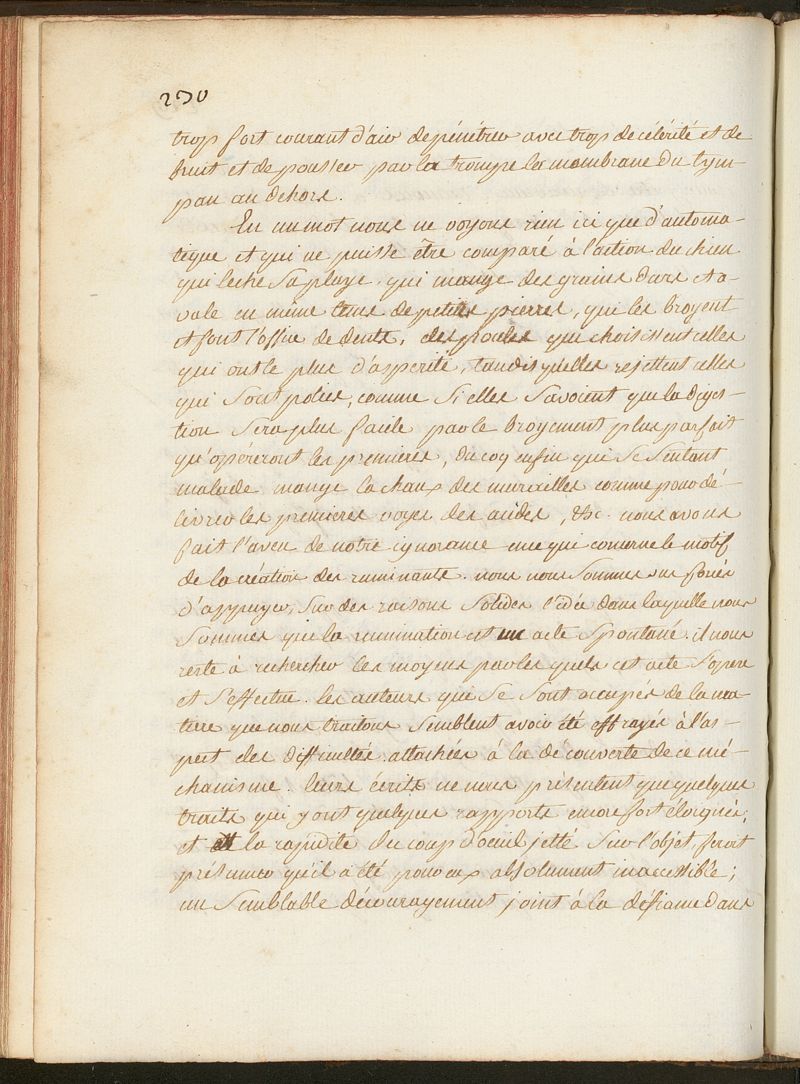 230
trop fort courant d'air de pénétrer avec trop de célérité et de
bruit et de pousser par la trompe la membrane du tym-
pan au dehors.
En un mot nous ne voyons rien ici que d'automa-
tique et qui ne puisse être comparé à l'action du chien
qui leche sa playe, qui mange des grains durs et a-
vale en même tems de petites pierres, que les broyent
et font l'office de dents, des poules qui choisissent celles
qui ont le plus d'asperité, tandis qu'elles rejettent celles
qui sont polies, comme si elles savoient que la diges-
tion sera plus facile par le broyement plus parfait
qu'opéreront les premieres, du coq enfin qui se sentant
malade mange la chaux des murailles comme pour dé-
livrer les premieres voyes des acides, &c. nous avons
fait l'aveu de notre ignorance en ce qui concerne le motif
de la création des ruminants. nous nous sommes efforcés
d'appuyer, sur des raisons solides l'idée dans laquelle nous
sommes que la rumination est un acte spontané. il nous
reste à rechercher les moyens par les quels cet acte s'opere
et s'effectue. les auteurs qui se sont occupés de la ma-
tiere que nous traitons semblent avoir été effrayés à l'as-
pect des difficultés attachées à la découverte de ce mé-
chanisme. leurs écrits ne nous présentent que quelques
traits qui y ont quelques rapports encore fort éloignés;
et la rapidité du coup d'oeuil jetté sur l'objet, feroit
présumer qu'il a été pour eux absolument inaccessible;
un semblable découragement joint à la défiance dans